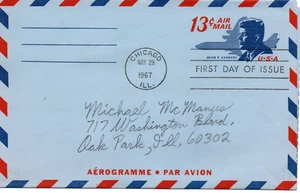 13¢ AIR
MAIL
JOHN F. KENNEDY
U·S·A
CHICAGO
MAY 29
1967
ILL.
FIRST DAY OF ISSUE
Michael McManus
717 Washington Blvd.
Oak Park, Ill. 60302
AÉROGRAMME · PAR AVION